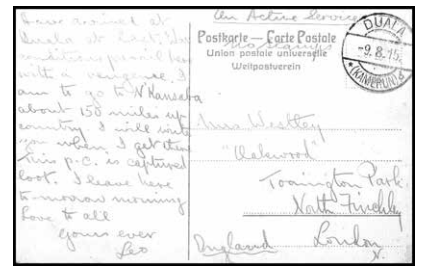 Have arrived at
Duala at last. War
conditions prevail here
with a vengeance. I
am to go to N'Kansaba
about 150 miles up
country. I will write
you when I get there
This p.c. is captured
loot. I leave here
to-morrow morning
Love to all
Yours ever
Leo
On Active Service
No stamps
Postkarte — Carte Postale
Union postale universelle
Weltpostverein
DUALA
-9.8.15.
(KAMERUN)
Mrs. Westley
"Oakwood"
Torrington Park.
North Finchley
London
N.
England